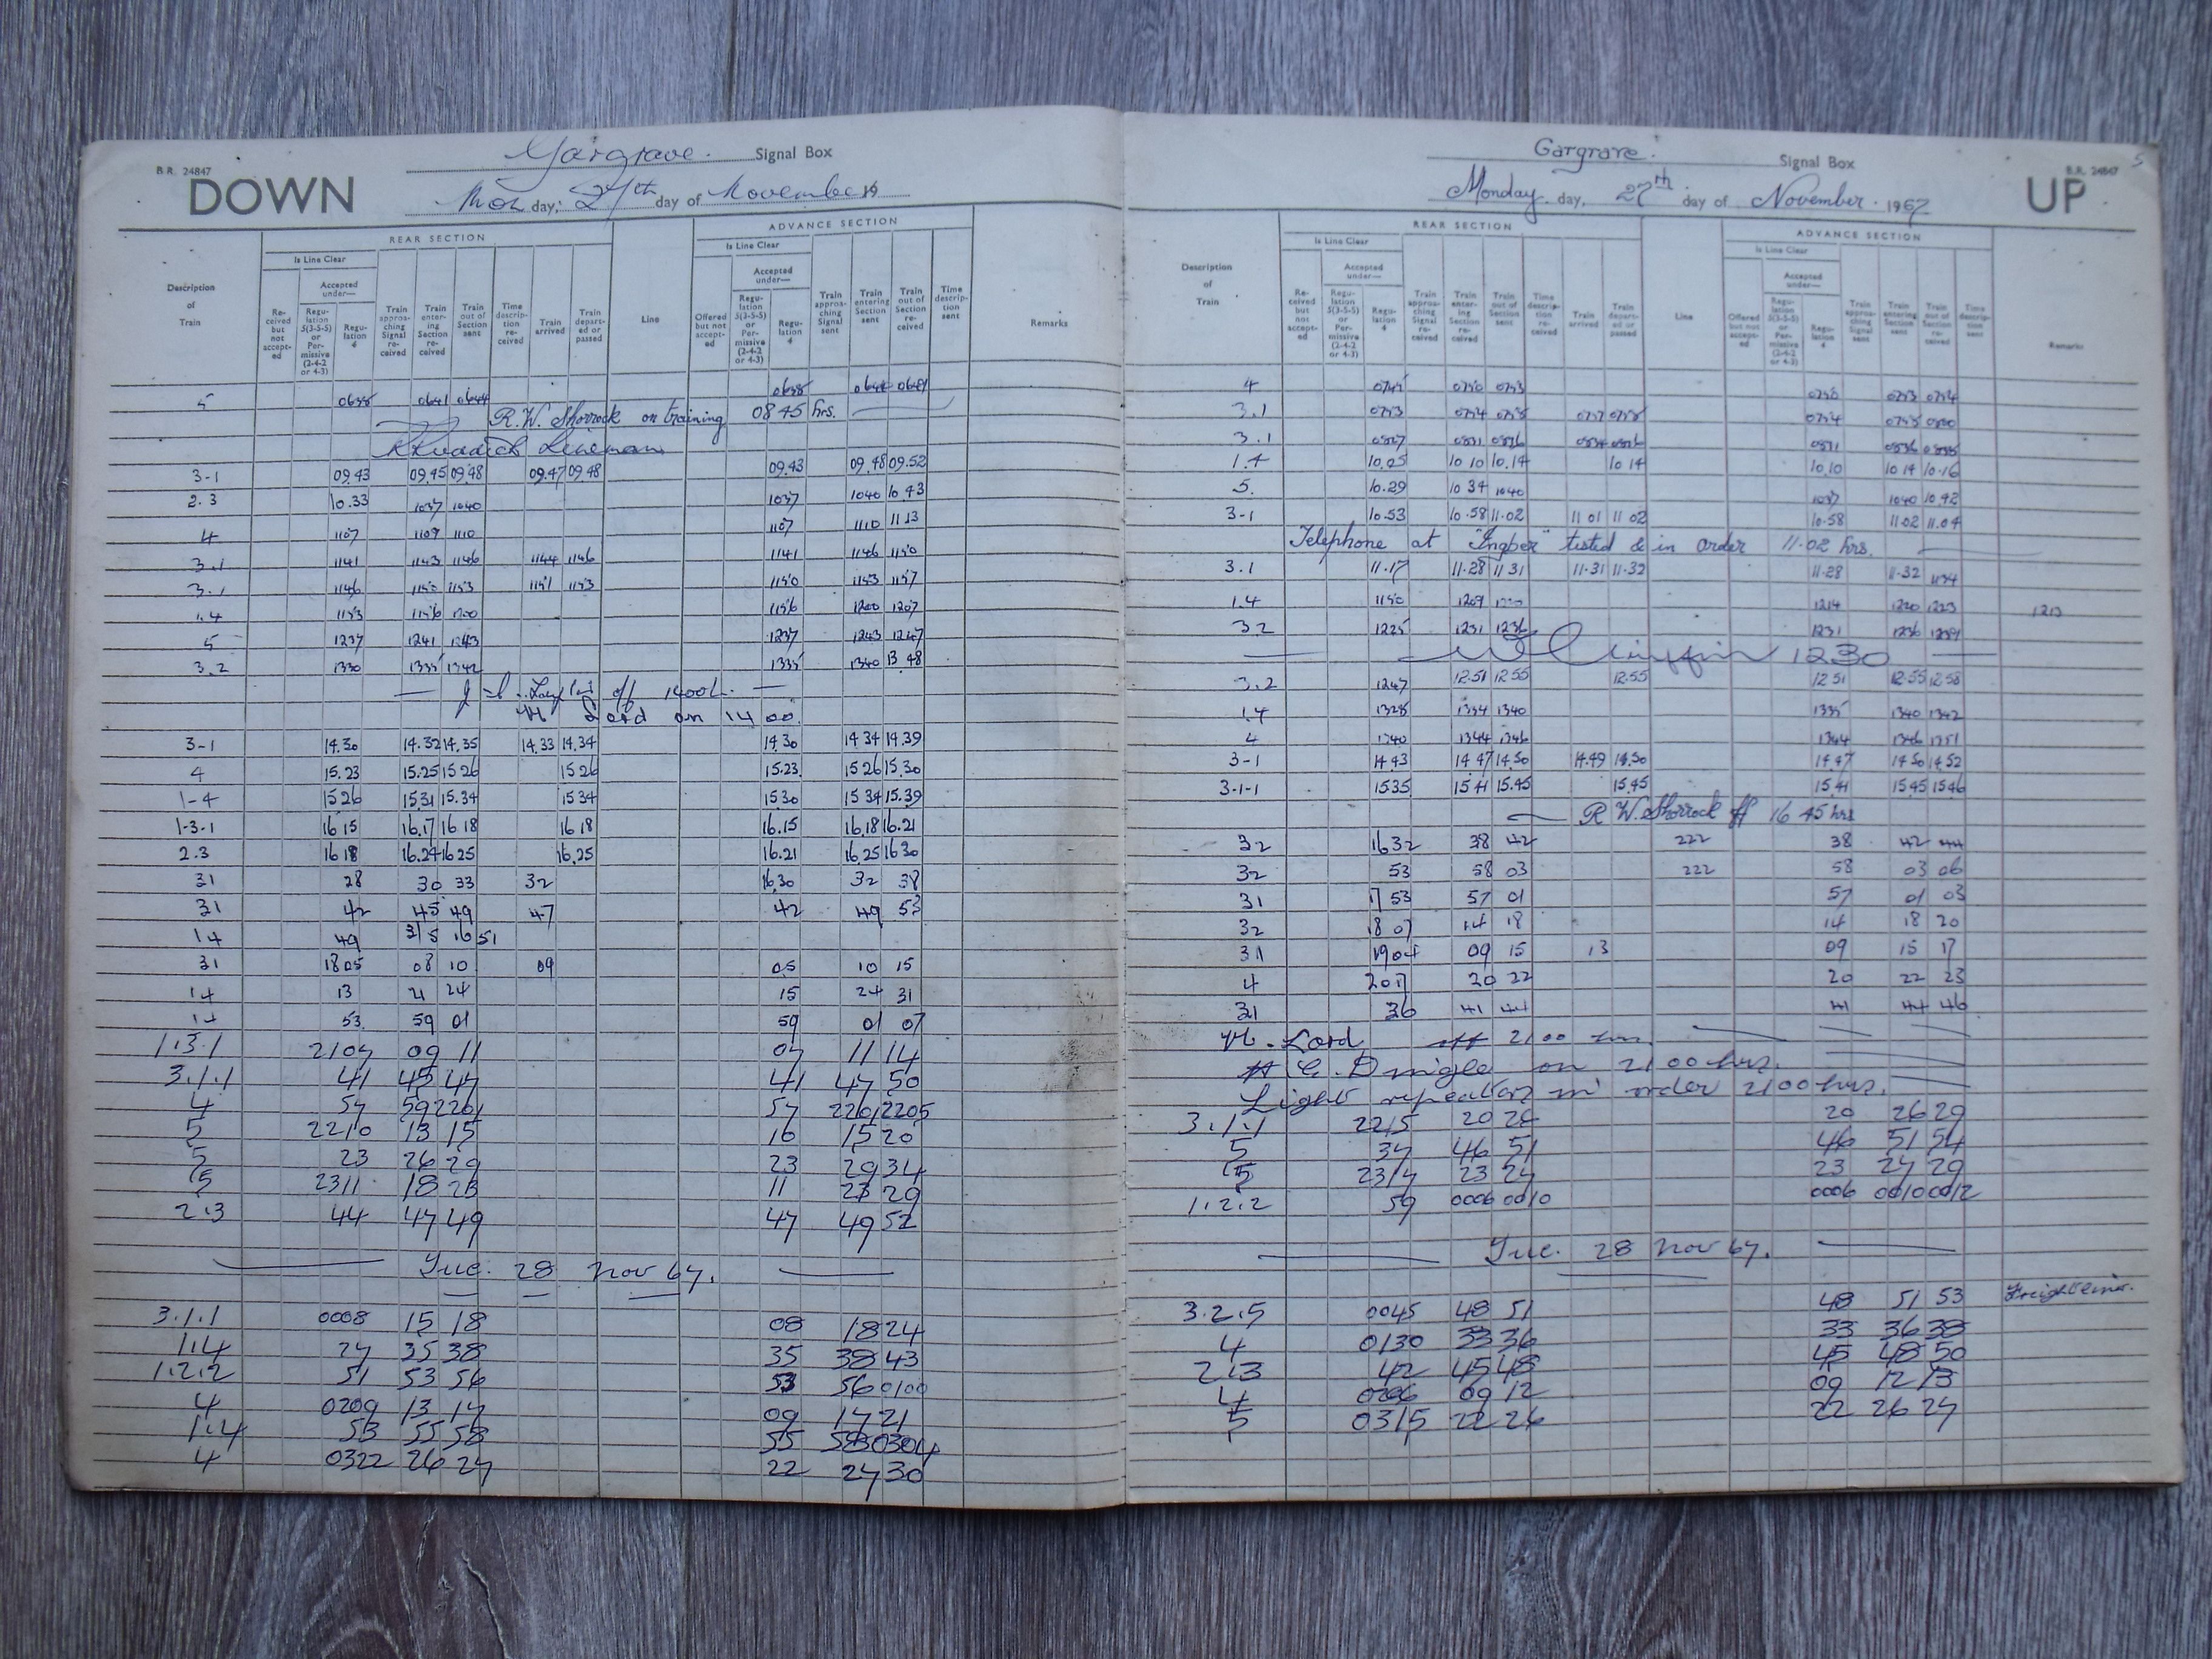 B.R. 24847
DOWN
Gargrave. Signal Box
Mon day, 27th day of November 19
REAR SECTION
ADVANCE SECTION
Is Line Clear
Is Line Clear
Description of Train
Received but not accepted
Accepted under—
Regulation 5(3-5-5) or Permissive (2-4-2 or 4-3)
Regulation 4
Train approaching Signal received
Train entering Section received
Train out of Section sent
Time description received
Train arrived
Train departed or passed
Line
Offered but not accepted
Accepted under—
Regulation 5(3-5-5) or Permissive (2-4-2 or 4-3)
Regulation 4
Train approaching Signal sent
Train entering Section sent
Train out of Section received
Time description sent
Remarks
5 0638 0641 0644 0638 0644
R.W. Shorrock on training 0845 hrs.
Lineman
3-1 09.43 09.45 09.48 09.47 09.48 09.43 09.48 09.52
2.3 10.33 1037 1040 1037 1040 10.43
4 1107 1109 1110 1107 1110 1113
3.1 1141 1143 1146 1144 1146 1141 1146 1150
3.1 1146 1150 1153 1151 1153 1150 1153 1157
1.4 1153 1156 1200 1156 1200 1207
5 1237 1241 1243 1237 1243 1247
3.2 1330 1335 1342 1335 1340 13 48
off 1400
Lord on 14 00.
3-1 14.30 14.32 14.35 14.33 14.34 14.30 14 34 14.39
4 15.23 15.25 15 26 15 26 15.23. 15 26 15.30
1-4 15 26 15 31 15.34 15 34 15 30 15 34 15.39
1-3-1 16 15 16.17 16 18 16 18 16.15 16.18 16.21
2.3 16 18 16.24 16 25 16.25 16.21 16 25 16 30
31 28 30 33 32 16.30 32 38
31 42 45 49 47 42 49 53
14 49 16 51
31 1805 08 10 09 05 10 15
14 13 21 24 15 24 31
14 53 59 01 59 01 07
1.3.1 2107 09 11 07 11 14
3.1.1 41 45 47 41 47 50
4 57 59 2201 57 2201 2205
5 2210 13 15 10 15 20
5 23 26 29 23 29 34
5 2311 18 23 11 23 29
2.3 44 47 49 47 49 52
Tue. 28 Nov 67.
3.1.1 0008 15 18 08 18 24
1.4 27 35 38 35 38 43
1.2.2 51 53 56 53 56 0100
4 0209 13 17 09 17 21
1.4 53 55 58 55 58 0304
4 0322 26 27 22 27 30
Gargrave. Signal Box
B.R. 24847
5
UP
Monday. day, 27th day of November. 1967
REAR SECTION
ADVANCE SECTION
Is Line Clear
Is Line Clear
Description of Train
Received but not accepted
Accepted under—
Regulation 5(3-5-5) or Permissive (2-4-2 or 4-3)
Regulation 4
Train approaching Signal received
Train entering Section received
Train out of Section sent
Time description received
Train arrived
Train departed or passed
Line
Offered but not accepted
Accepted under—
Regulation 5(3-5-5) or Permissive (2-4-2 or 4-3)
Regulation 4
Train approaching Signal sent
Train entering Section sent
Train out of Section received
Time description sent
Remarks
4 0750 0753 0750 0753 0754
3.1 0753 0754 0758 0757 0758 0754 0758 0800
3.1 0827 0831 0836 0834 0836 0831 0836
1.4 10.05 10 10 10.14 10 14 10.10 10 14 10.16
5. 10.29 10 34 1040 1037 1040 10 42
3-1 10.53 10.58 11.02 11 01 11 02 10.58 11 02 11.04
Telephone at "Ingber" tested & in order 11.02 hrs.
3.1 11.17 11.28 11 31 11.31 11.32 11.28 11.32 1134
1.4 1150 1209 1214 1220 1223 1213
3.2 1225 1231 1236 1231 1236 1239
1230
3.2 1247 12.51 12 55 12.55 12 51 12.55 12 58
1.4 1328 1334 1340 1335 1340 1342
4 1340 1344 1346 1344 1346 1351
3-1 14 43 14 47 14.50 14.49 14.50 14 47 14 50 14 52
3-1-1 15 35 15 41 15.45 15.45 15 41 15 45 15 46
R W. Shorrock off 16 45 hrs
32 1632 38 42 222 38 42 44
32 53 58 03 222 58 03 06
31 17 53 57 01 57 01 03
32 18 07 14 18 14 18 20
31 1904 09 15 13 09 15 17
4 2017 20 22 20 22 23
31 36 41 44 41 44 46
Lord off 2100 hrs.
on 2100 hrs.
Light repeaters in order 2100 hrs.
3.1.1 2215 20 26 20 26 29
5 37 46 51 46 51 54
5 2317 23 27 23 27 29
1.2.2 59 0006 0010 0006 0010 0012
Tue. 28 Nov 67.
3.2.5 0045 48 51 48 51 53 Freightliner.
4 0130 33 36 33 36 38
2.3 42 45 48 45 48 50
4 0206 09 12 09 12 13
5 0315 22 26 22 26 27